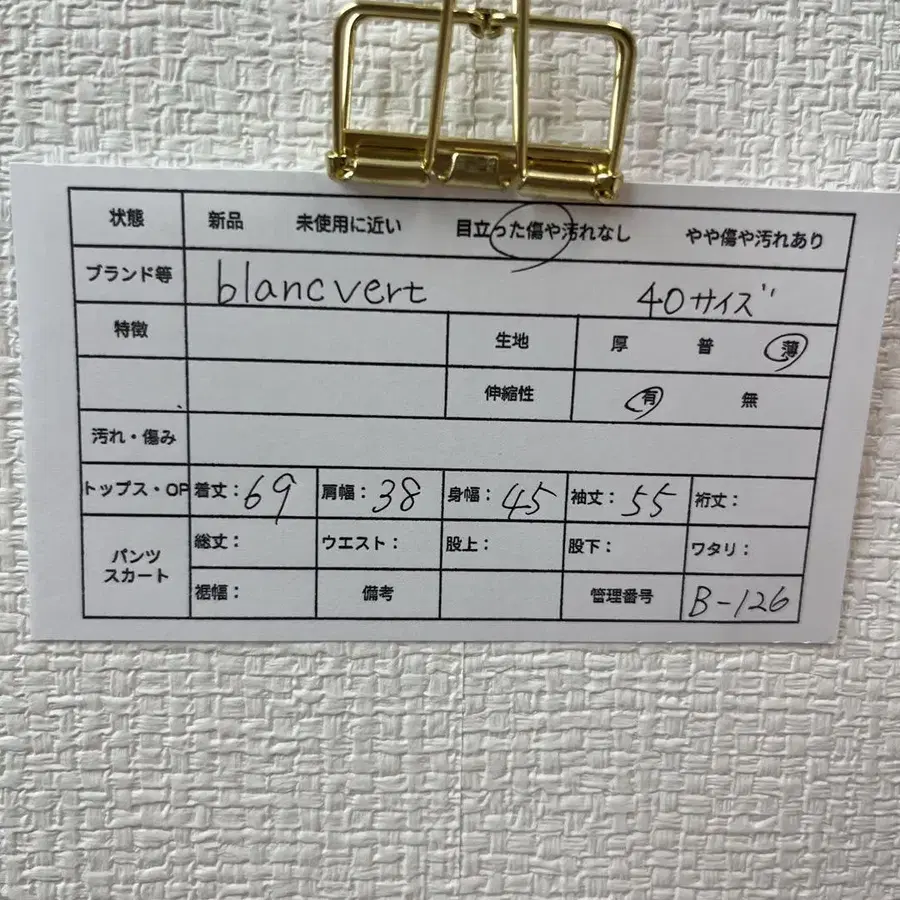 状態 新品 未使用に近い 目立った傷や汚れなし やや傷や汚れあり
ブランド等 blancvert 40サイズ
特徴 生地 厚 普 薄
伸縮性 有 無
汚れ・傷み
トップス・OP 着丈:69 肩幅:38 身幅:45 袖丈:55 裄丈:
パンツ スカート 総丈: ウエスト: 股上: 股下: ワタリ:
裾幅: 備考 管理番号 B-126